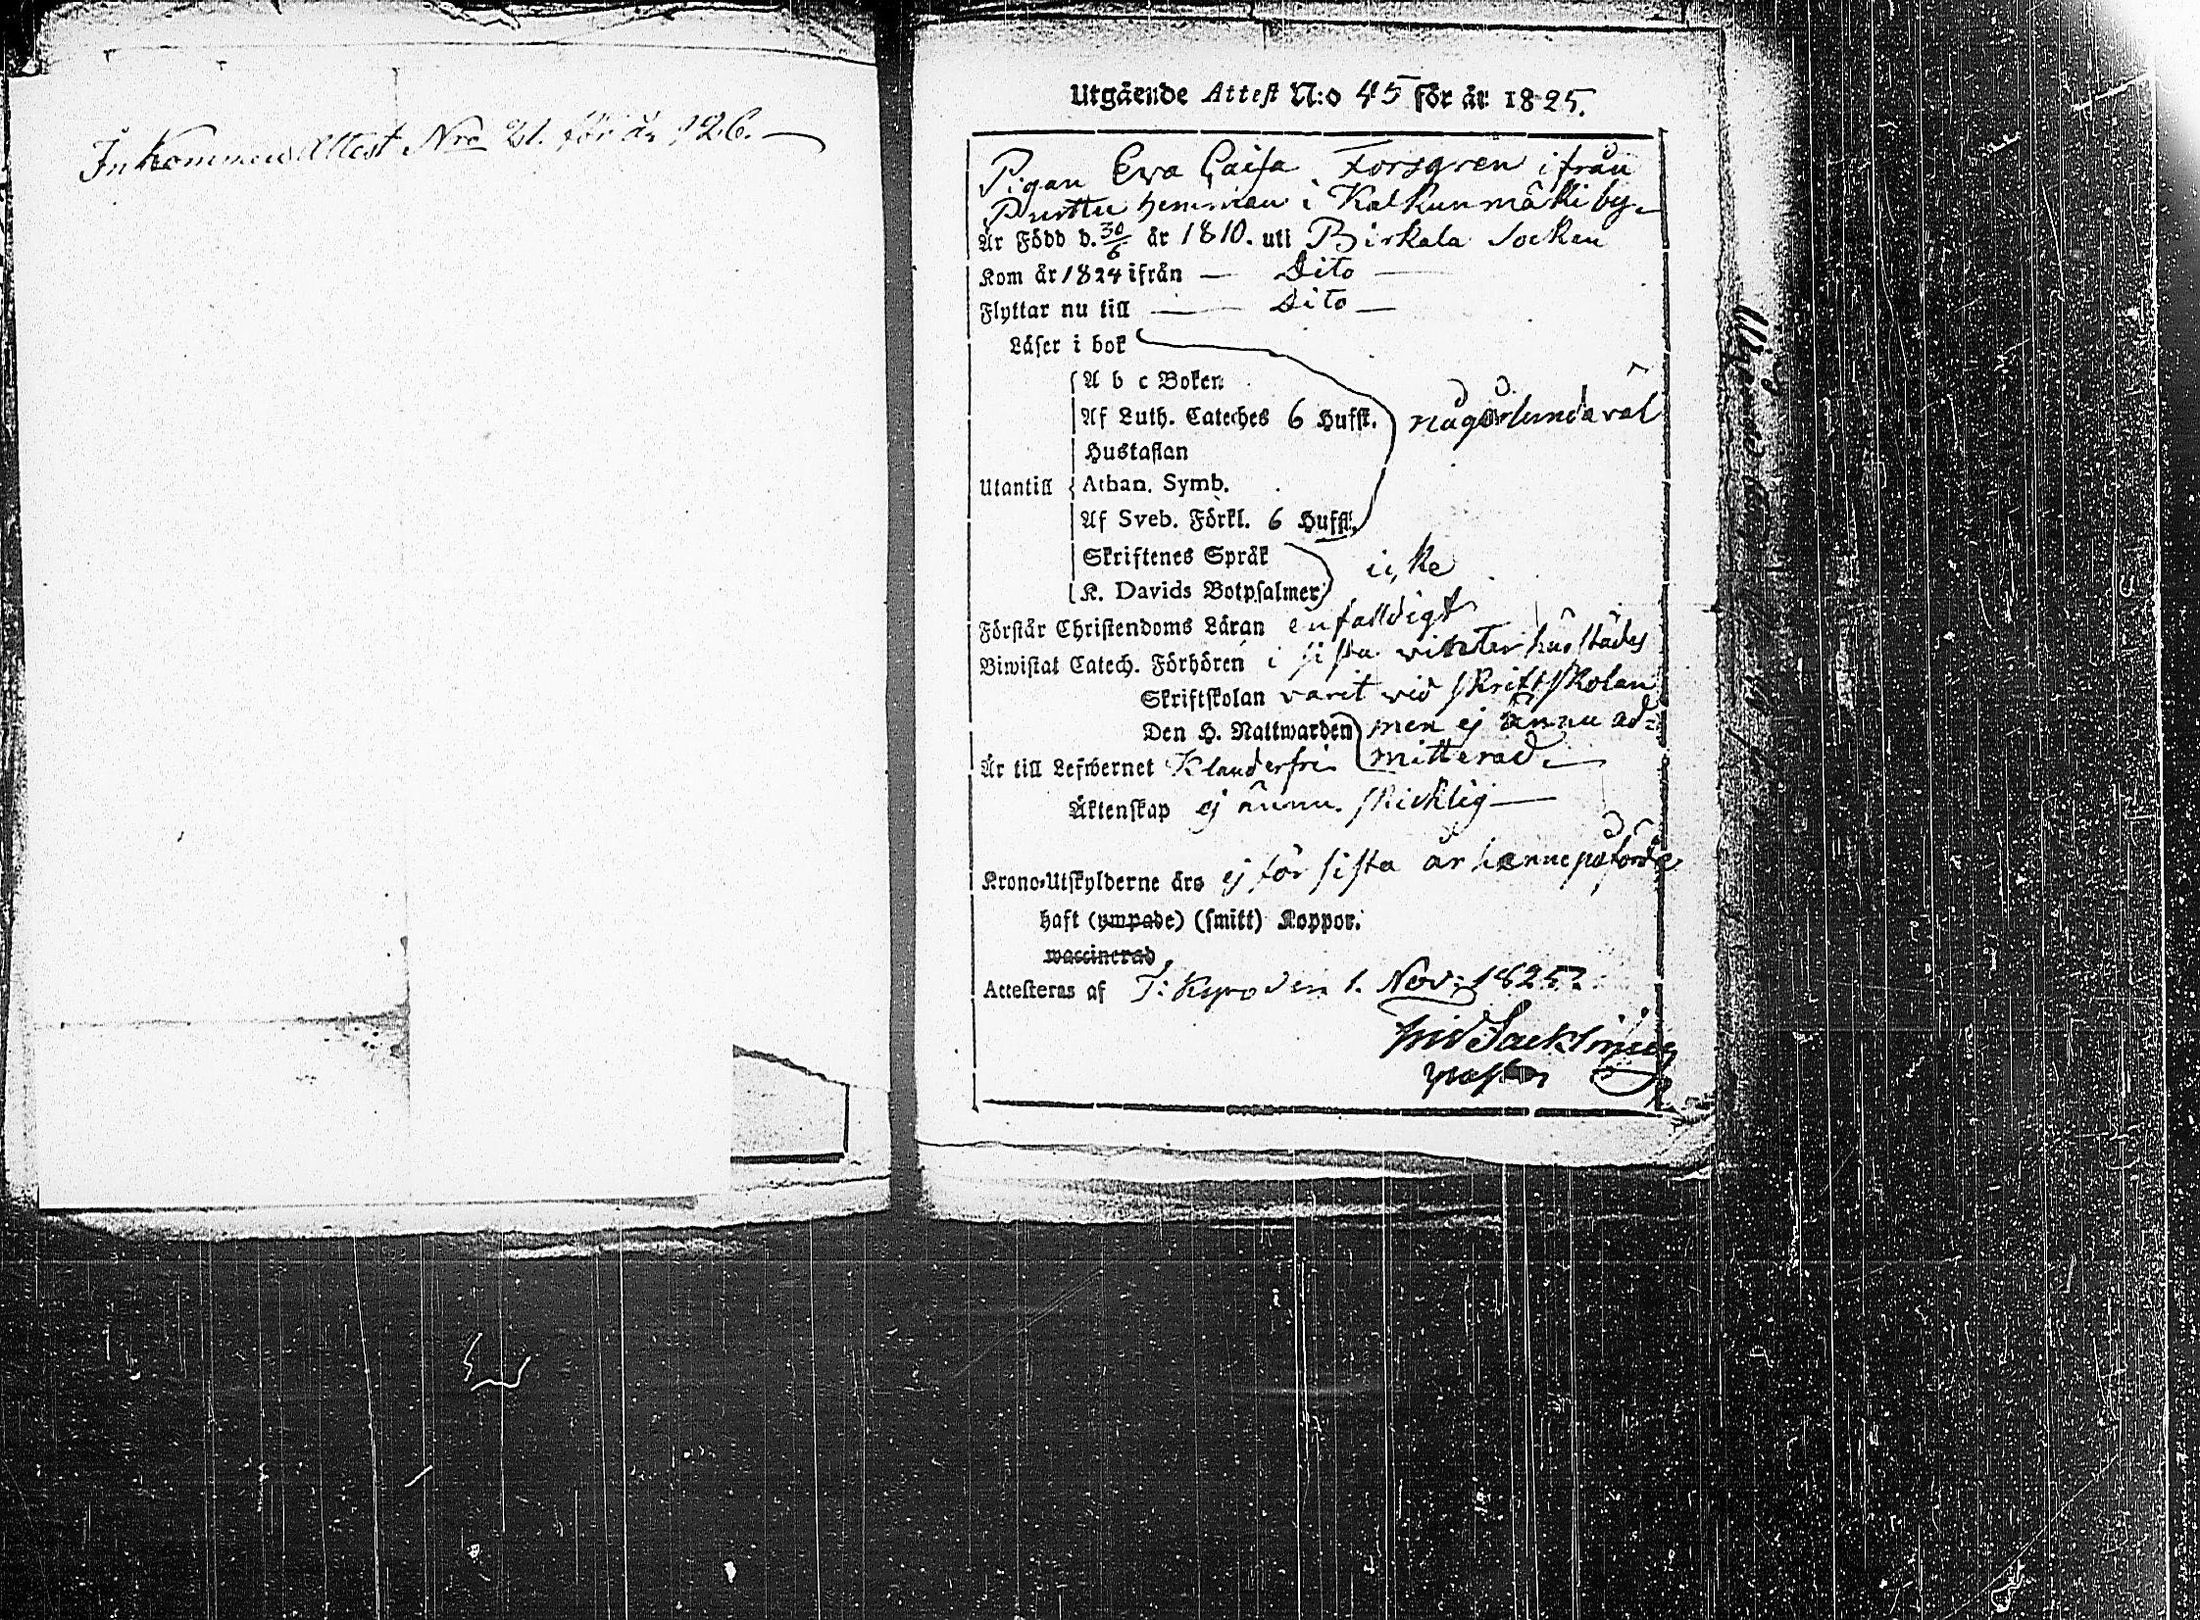 Inkommen Attest Nro 21. för år 1826.
Utgående Attest N:o 45 för år 1825.
Pigan Ewa Caisa Forsgren ifrån
Purttu hemman i Kalkunmäki by.
Är Född d. 30/6 år 1810. uti Birkala Socken
Kom år 1824 ifrån — Dito —
Flyttar nu till — Dito —
Läser i bok
A b c Boken
Af Luth. Cateches 6 Hufst. någorlunda väl
Hustaflan
Utantill Athan. Symb.
Af Sveb. Förkl. 6 Hufst.
Skriftenes Språk
icke
K. Davids Botpsalmer
Förstår Christendoms Läran enfaldigt
Biwistat Catech. Förhören i sista vinter härstädes
Skriftskolan varit vid skriftskolan
Den H. Nattwarden men ej ännu ad-
Är till Lefwernet Klanderfri mitterad.
Äktenskap ej ännu skicklig
Krono-Utskylderne äro ej för sista år henne påförde
haft (ympade) (smitt) Koppor.
waccinerad
Attesteras af T: Kyro den 1. Nov: 1825.